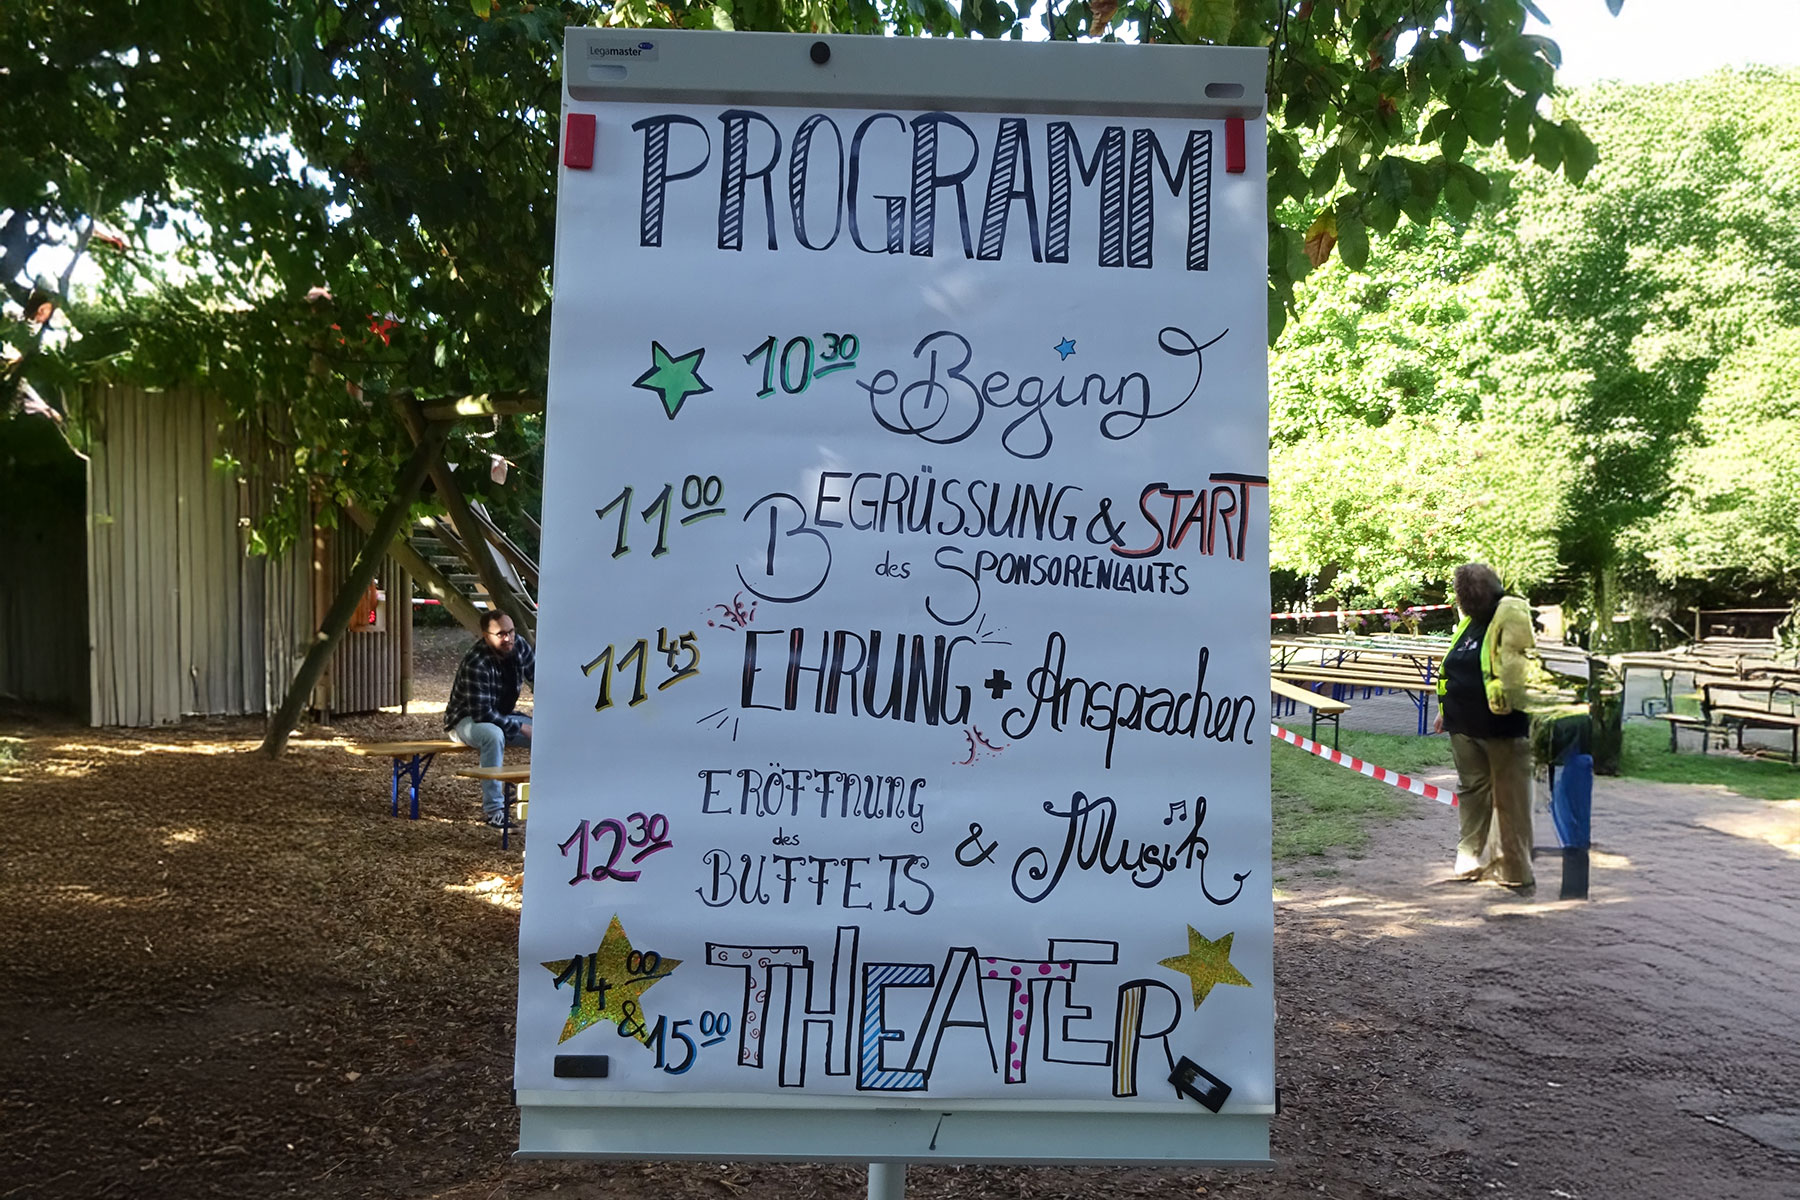 Legamaster
PROGRAMM
10 30 Beginn
11 00 BEGRÜSSUNG & START
des SPONSORENLAUFS
11 45 EHRUNG + Ansprachen
ERÖFFNUNG
12 30 des & Musik
BUFFETS
14 00 THEATER
& 15 00